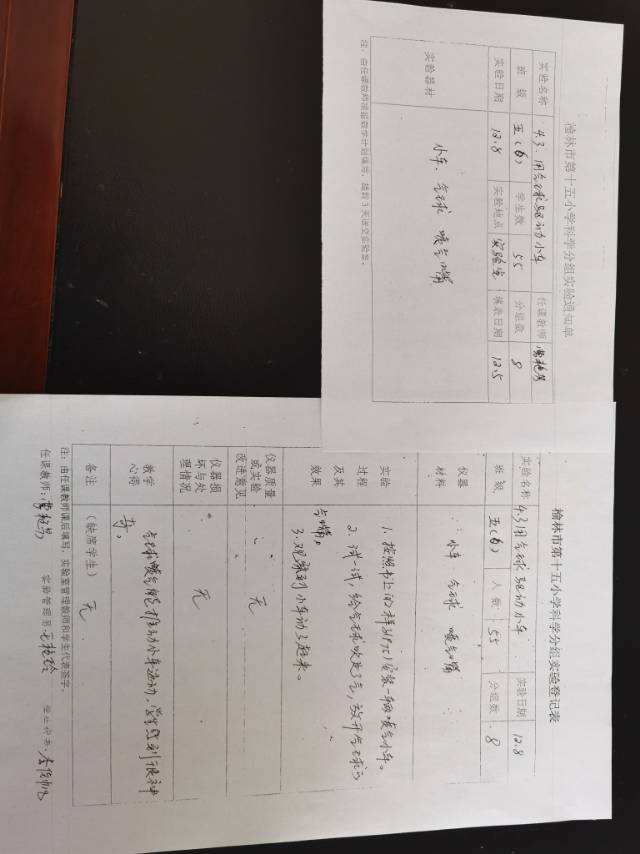 榆林市第十五小学科学分组实验通知单
实验名称 4.3.用气球驱动小车 任课教师
班级 五(6) 学生数 55 分组数 8
实验日期 12.8 实验地点 实验室 填表日期 12.5
实验器材 小车、气球 喷气嘴
注：由任课教师根据教学计划填写，提前3天送交实验室。
榆林市第十五小学科学分组实验登记表
实验名称 4.3用气球驱动小车 实验日期 12.8
班级 五(6) 人数 55 分组数 8
仪器材料 小车 气球 喷气嘴
实验过程及其效果
1.按照书上的样(P70)安装一辆喷气小车。
2.试一试,给气球吹足了气,放开气球的
气嘴。
3.观察到小车动了起来。
仪器质量或实验改进意见 无
仪器损坏与处理情况 无
教学心得
气球喷气能推动小车运动,学生感到很神
奇。
备注 (缺席学生) 无
注：由任课教师课后填写，实验室管理教师和学生代表签字。
任课教师: 实验管理员: 学生代表: